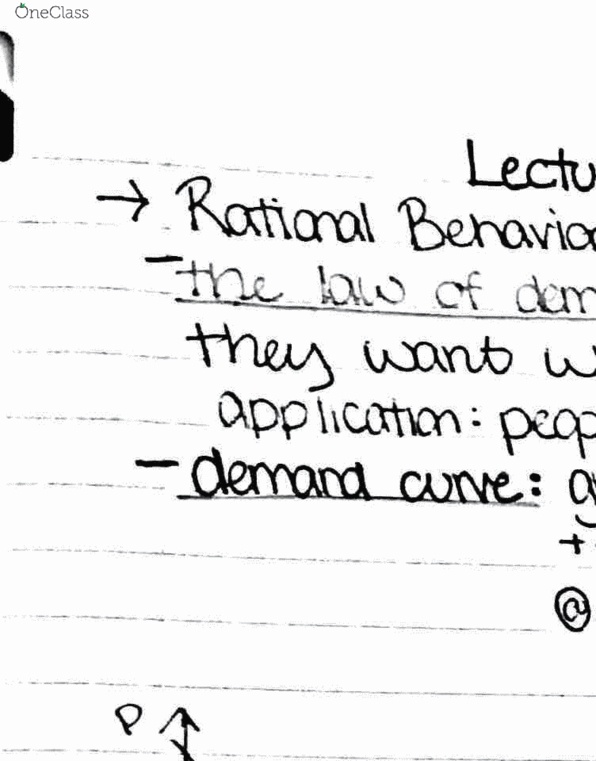 OneClass
Lectu
→ Rational Behavio
- the law of dem
they want w
application: peop
- demand curve:
+
@
P